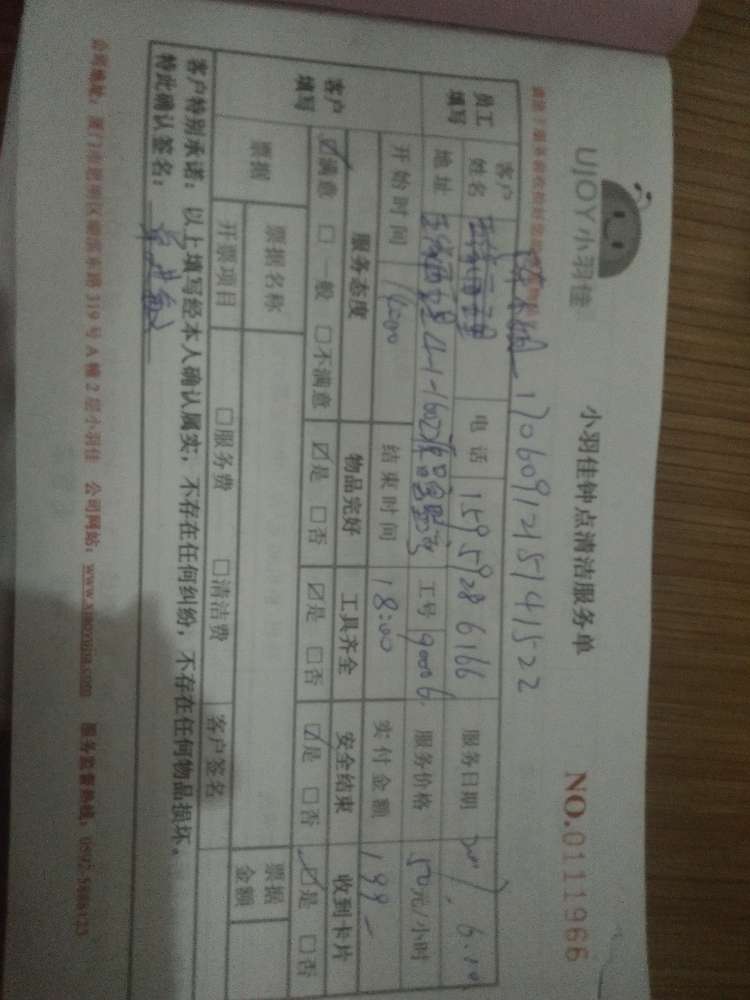 UJOY小羽佳
小羽佳钟点清洁服务单
NO.0111966
1706091215141522
员工填写
客户姓名
电话 15959286166
服务日期 6.10
地址
工号 90006
服务价格 50元/小时
开始时间 14:00
结束时间 18:00
实付金额 199
客户填写
服务态度 物品完好 工具齐全 安全结束 收到卡片
☑满意 □一般 □不满意 ☑是 □否 ☑是 □否 ☑是 □否 ☑是 □否
票据
票据名称
票据金额
开票项目 □服务费 □清洁费 客户签名
客户特别承诺：以上填写经本人确认属实，不存在任何纠纷，不存在任何物品损坏。
特此确认签名：
公司地址：厦门市思明区 东路319号A幢2层小羽佳 公司网站：www.xiaoyujia.com 服务监督热线：0592-5886123